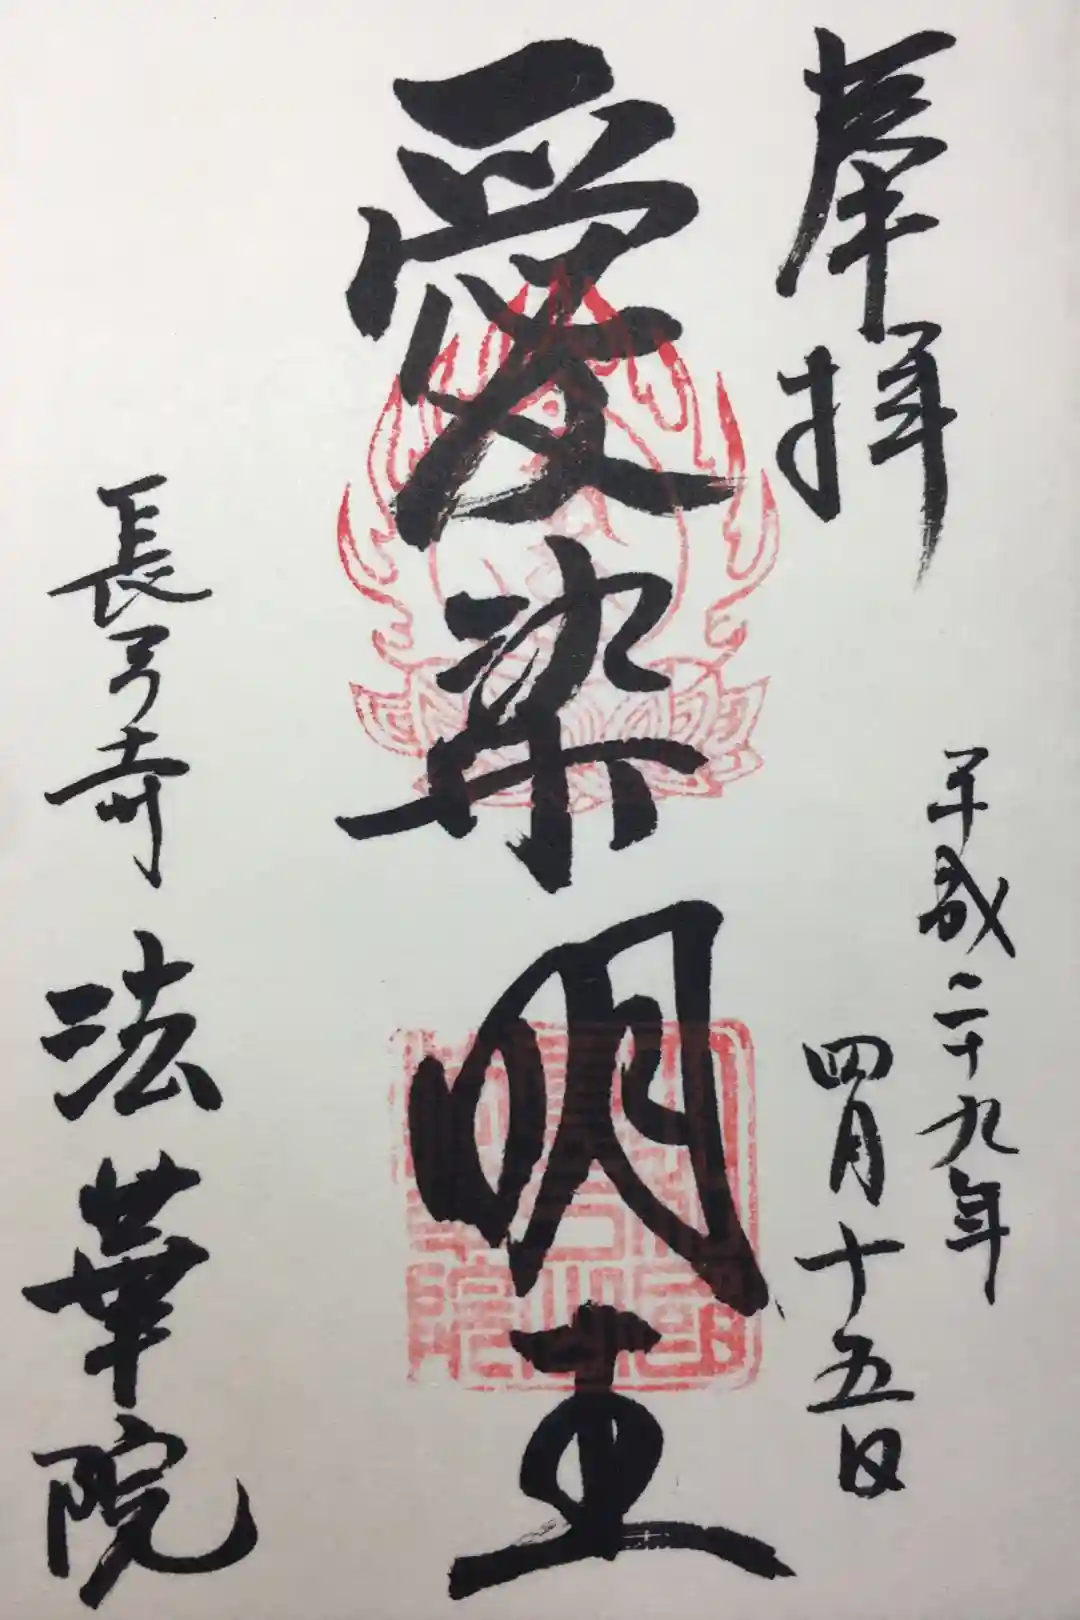 奉拝
平成二十九年
四月十五日
愛染明王
長弓寺 法華院